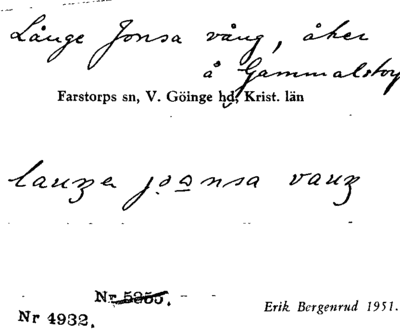 Långe Jonsa vång, åker
å Gammalstorp
Farstorps sn, V. Göinge hd, Krist. län
Nr 5355.
Nr 4932.
Erik Bergenrud 1951.